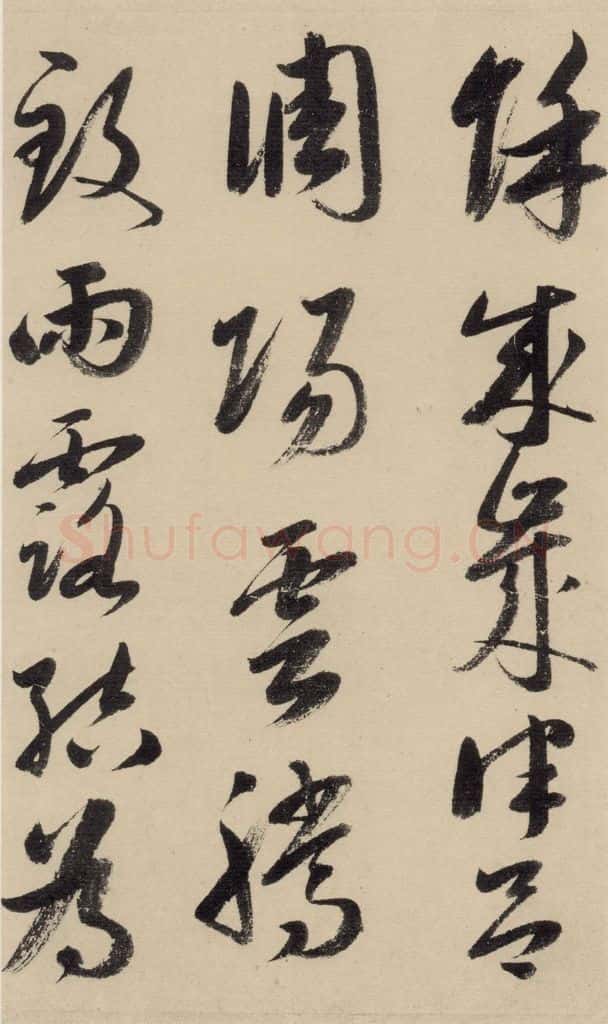 餘成歲律呂
調陽雲騰
致雨露結為
Shufawang.CN